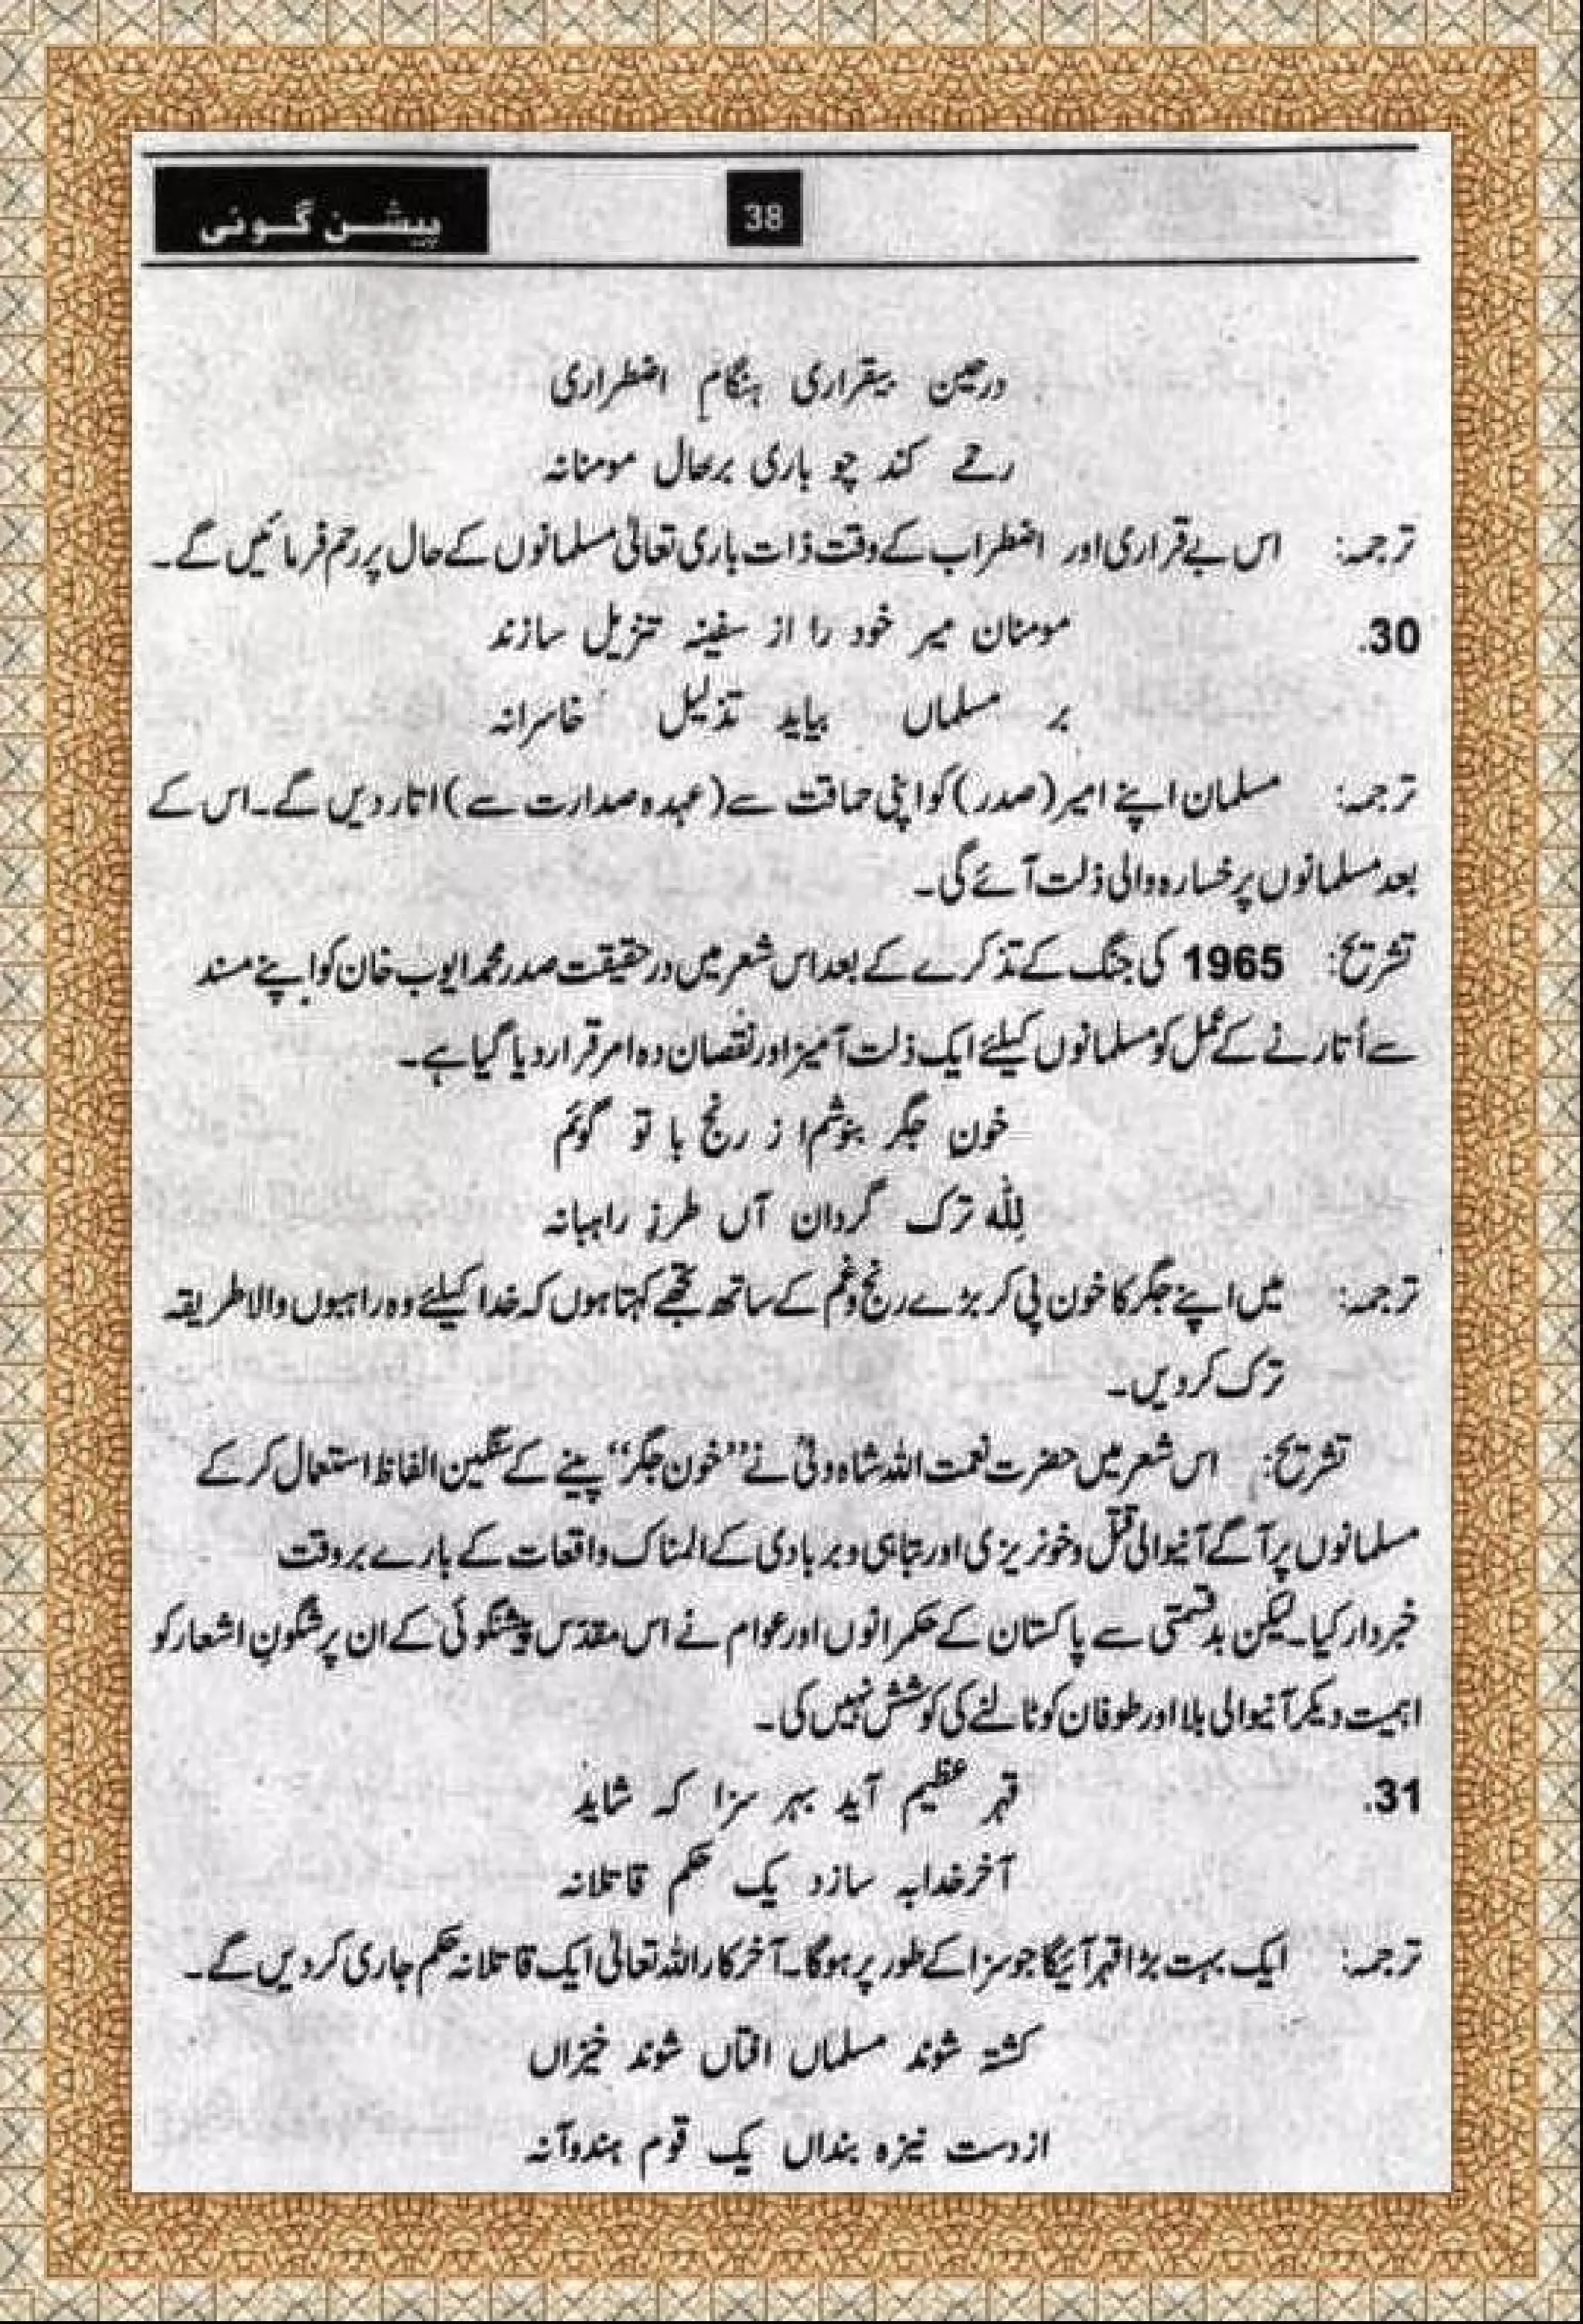 پیشن گوئی
38
درحین بیقراری ہنگام اضطراری
رحمے کند چو باری برحال مومنانہ
ترجمہ: اس بے قراری اور اضطراب کے وقت ذات باری تعالیٰ مسلمانوں کے حال پر رحم فرمائیں گے۔
30. مومنان میر خود را از سفینہ تنزیل سازند
بر مسلماں بیاید تذلیل خاسرانہ
ترجمہ: مسلمان اپنے امیر (صدر) کو اپنی حماقت سے (عہدہ صدارت سے) اتار دیں گے۔ اس کے
بعد مسلمانوں پر خسارہ والی ذلت آئے گی۔
تشریح: 1965 کی جنگ کے تذکرے کے بعد اس شعر میں درحقیقت صدر محمد ایوب خان کو اپنے مسند
سے اُتارنے کے عمل کو مسلمانوں کیلئے ایک ذلت آمیز اور نقصان دہ امر قرار دیا گیا ہے۔
خون جگر بنوشم از رنج با تو گوئم
لِلّٰہ ترک گردان آں طرزِ راہبانہ
ترجمہ: میں اپنے جگر کا خون پی کر بڑے رنج وغم کے ساتھ تجھے کہتا ہوں کہ خدا کیلئے وہ راہبوں والا طریقہ
ترک کردیں۔
تشریح: اس شعر میں حضرت نعمت اللہ شاہ ولیؒ نے ”خون جگر“ پینے کے سنگین الفاظ استعمال کر کے
مسلمانوں پر آگے آنیوالی قتل و خونریزی اور تباہی و بربادی کے المناک واقعات کے بارے بروقت
خبردار کیا۔ لیکن بدقسمتی سے پاکستان کے حکمرانوں اور عوام نے اس مقدس پیشنگوئی کے ان پرشگون اشعار کو
اہمیت دیکر آنیوالی بلا اور طوفان کو ٹالنے کی کوشش نہیں کی۔
31. قہر عظیم آید بہر سزا کہ شاید
آخر خدابہ سازد یک حکم قاتلانہ
ترجمہ: ایک بہت بڑا قہر آئیگا جو سزا کے طور پر ہوگا۔ آخر کار اللہ تعالیٰ ایک قاتلانہ حکم جاری کردیں گے۔
کشتہ شوند مسلماں افتاں شوند خیزاں
از دست نیزہ بنداں یک قوم ہندوآنہ